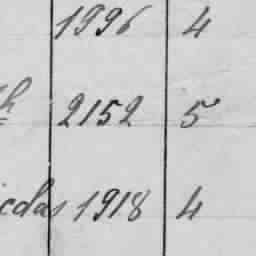 1996 4
h 2152 5
colas 1918 4